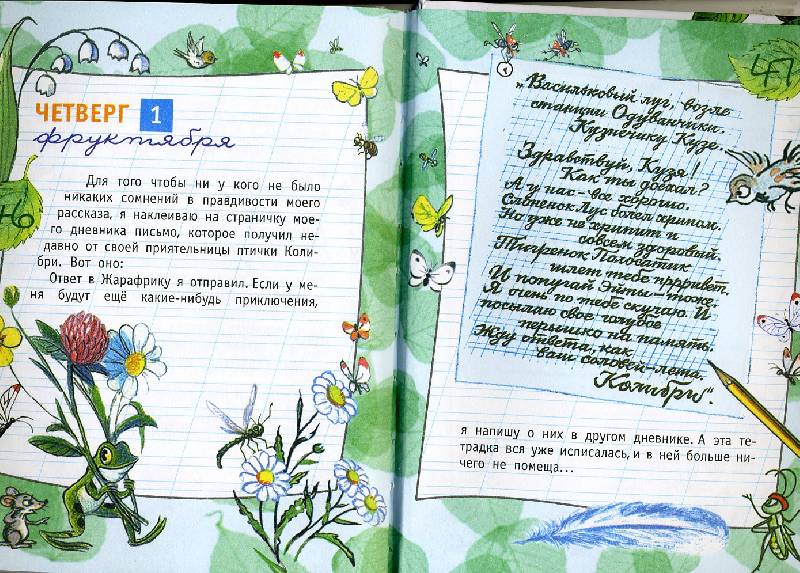 ЧЕТВЕРГ 1
фруктября
Для того чтобы ни у кого не было
никаких сомнений в правдивости моего
рассказа, я наклеиваю на страничку мое-
го дневника письмо, которое получил не-
давно от своей приятельницы птички Коли-
бри. Вот оно:
Ответ в Жарафрику я отправил. Если у ме-
ня будут ещё какие-нибудь приключения,
„Васильковый луг, возле
станции Одуванчики.
Кузнечику Кузе.
Здравствуй, Кузя!
Как ты доехал?
А у нас – все хорошо.
Слонёнок Лус болел хрипом.
Но уже не хрипит и
совсем здоровый.
Тигрёнок Полосатик
шлет тебе пррривет.
И попугай Эйты – тоже.
Я очень по тебе скучаю. И
посылаю свое голубое
перышко на память.
Жду ответа, как
ваш соловей – лета.
Колибри“.
я напишу о них в другом дневнике. А эта те-
традка вся уже исписалась, и в ней больше ни-
чего не помеща...